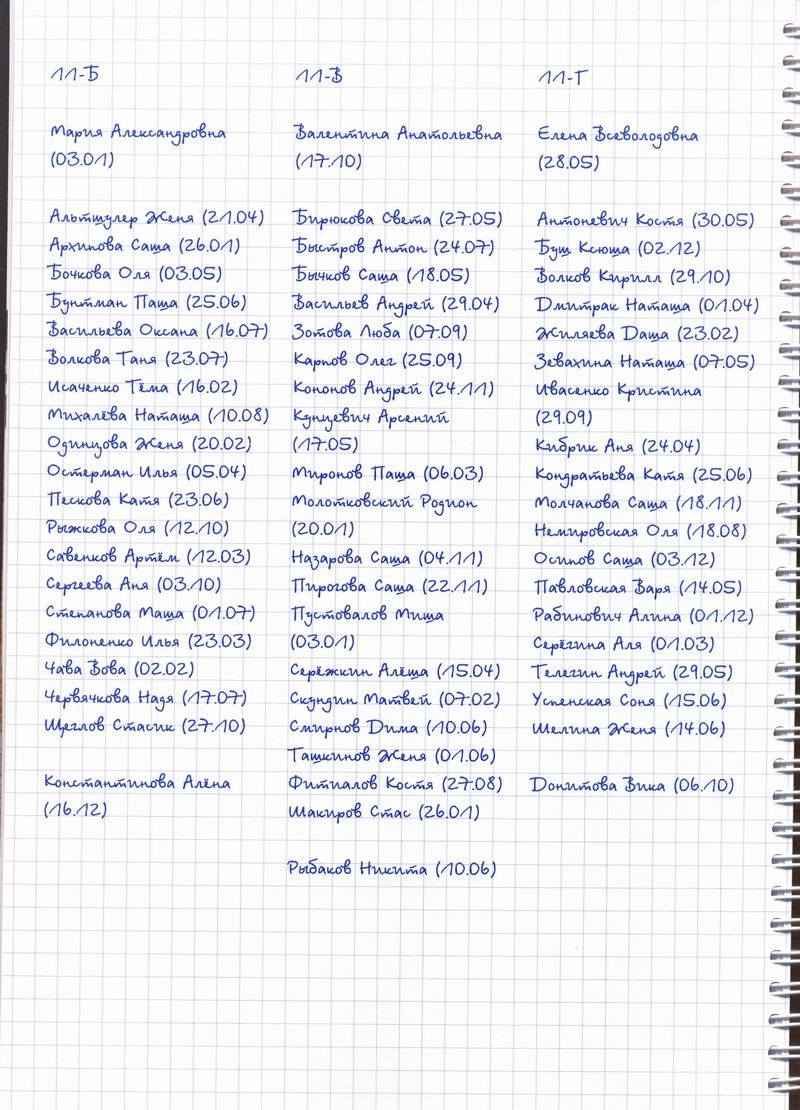 11-Б
Мария Александровна
(03.01)
Альтшулер Женя (21.04)
Архипова Саша (26.01)
Бочкова Оля (03.05)
Бунтман Паша (25.06)
Васильева Оксана (16.07)
Волкова Таня (23.07)
Исаченко Тёма (16.02)
Михалёва Наташа (10.08)
Одинцова Женя (20.02)
Остерман Илья (05.04)
Пескова Катя (23.06)
Рыжкова Оля (12.10)
Савенков Артём (12.03)
Сергеева Аня (03.10)
Степанова Маша (01.07)
Филоненко Илья (23.03)
Чава Вова (02.02)
Червячкова Надя (17.07)
Щеглов Стасик (27.10)
Константинова Алёна
(16.12)
11-В
Валентина Анатольевна
(17.10)
Бирюкова Света (27.05)
Быстров Антон (24.07)
Бычков Саша (18.05)
Васильев Андрей (29.04)
Зотова Люба (07.09)
Карпов Олег (25.09)
Кононов Андрей (24.11)
Кунцевич Арсений
(17.05)
Миронов Паша (06.03)
Молотковский Родион
(20.01)
Назарова Саша (04.11)
Пирогова Саша (22.11)
Пустовалов Миша
(03.01)
Серёжкин Алёша (15.04)
Скундин Матвей (07.02)
Смирнов Дима (10.06)
Ташкинов Женя (01.06)
Фитиалов Костя (27.08)
Шакиров Стас (26.01)
Рыбаков Никита (10.06)
11-Г
Елена Всеволодовна
(28.05)
Антоневич Костя (30.05)
Буш Ксюша (02.12)
Волков Кирилл (29.10)
Дмитрак Наташа (01.04)
Жиляева Даша (23.02)
Зевахина Наташа (07.05)
Ивасенко Кристина
(29.09)
Кибрик Аня (24.04)
Кондратьева Катя (25.06)
Молчанова Саша (18.11)
Немировская Оля (18.08)
Осипов Саша (03.12)
Павловская Варя (14.05)
Рабинович Алина (01.12)
Серёгина Аля (01.03)
Телегин Андрей (29.05)
Успенская Соня (15.06)
Шелина Женя (14.06)
Донитова Вика (06.10)